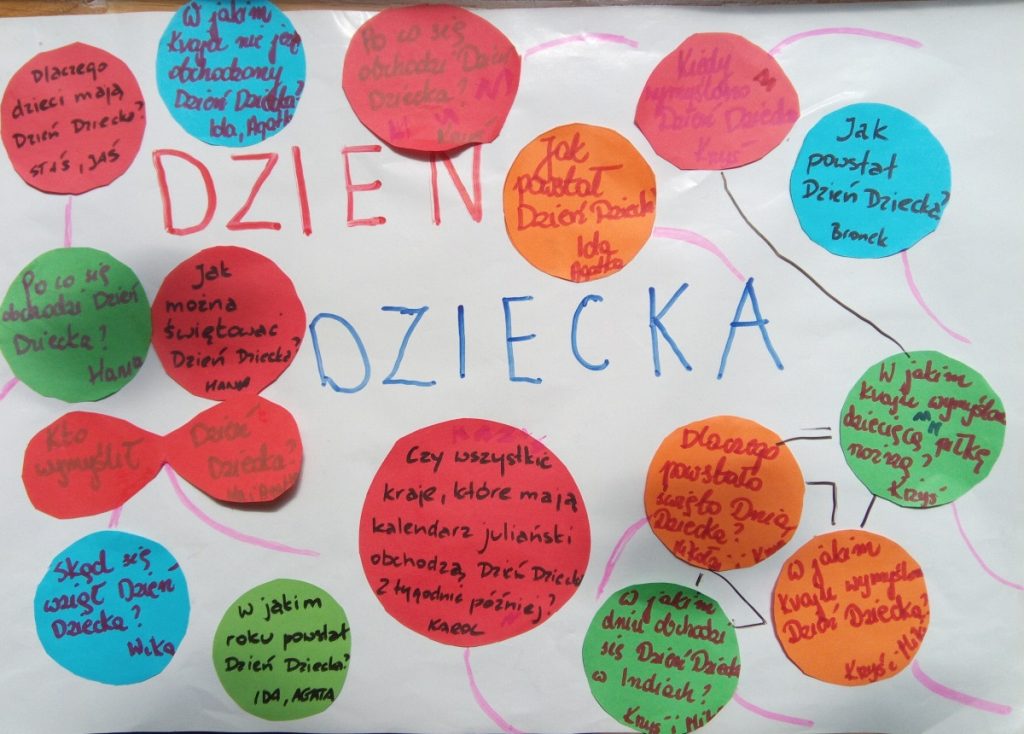 Dlaczego
dzieci mają
Dzień Dziecka?
STAŚ, JAŚ
W jakim
kraju nie jest
obchodzony
Dzień Dziecka?
Ida, Agatka
Po co się
obchodzi Dzień
Dziecka?
Krzyś
Kiedy
wymyślono
Dzień Dziecka
Krzyś
Jak
powstał
Dzień Dziecka?
Ida
Agatka
Jak
powstał
Dzień Dziecka?
Bronek
DZIEŃ
DZIECKA
Po co się
obchodzi Dzień
Dziecka?
Hania
Jak
można
świętować
Dzień Dziecka?
HANIA
Kto
wymyślił
Dzień
Dziecka?
i Agatka
Czy wszystkie
kraje, które mają
kalendarz juliański
obchodzą Dzień Dziecka
2 tygodnie później?
KAROL
Dlaczego
powstało
święto Dnia
Dziecka?
W jakim
kraju wymyślono
dziecięcą piłkę
nożną?
Krzyś
Skąd się
wziął Dzień
Dziecka?
Wika
W jakim
roku powstał
Dzień Dziecka?
IDA, AGATA
W jakim
dniu obchodzi
się Dzień Dziecka
w Indiach?
Krzyś i
W jakim
kraju wymyślono
Dzień Dziecka?
Krzyś i